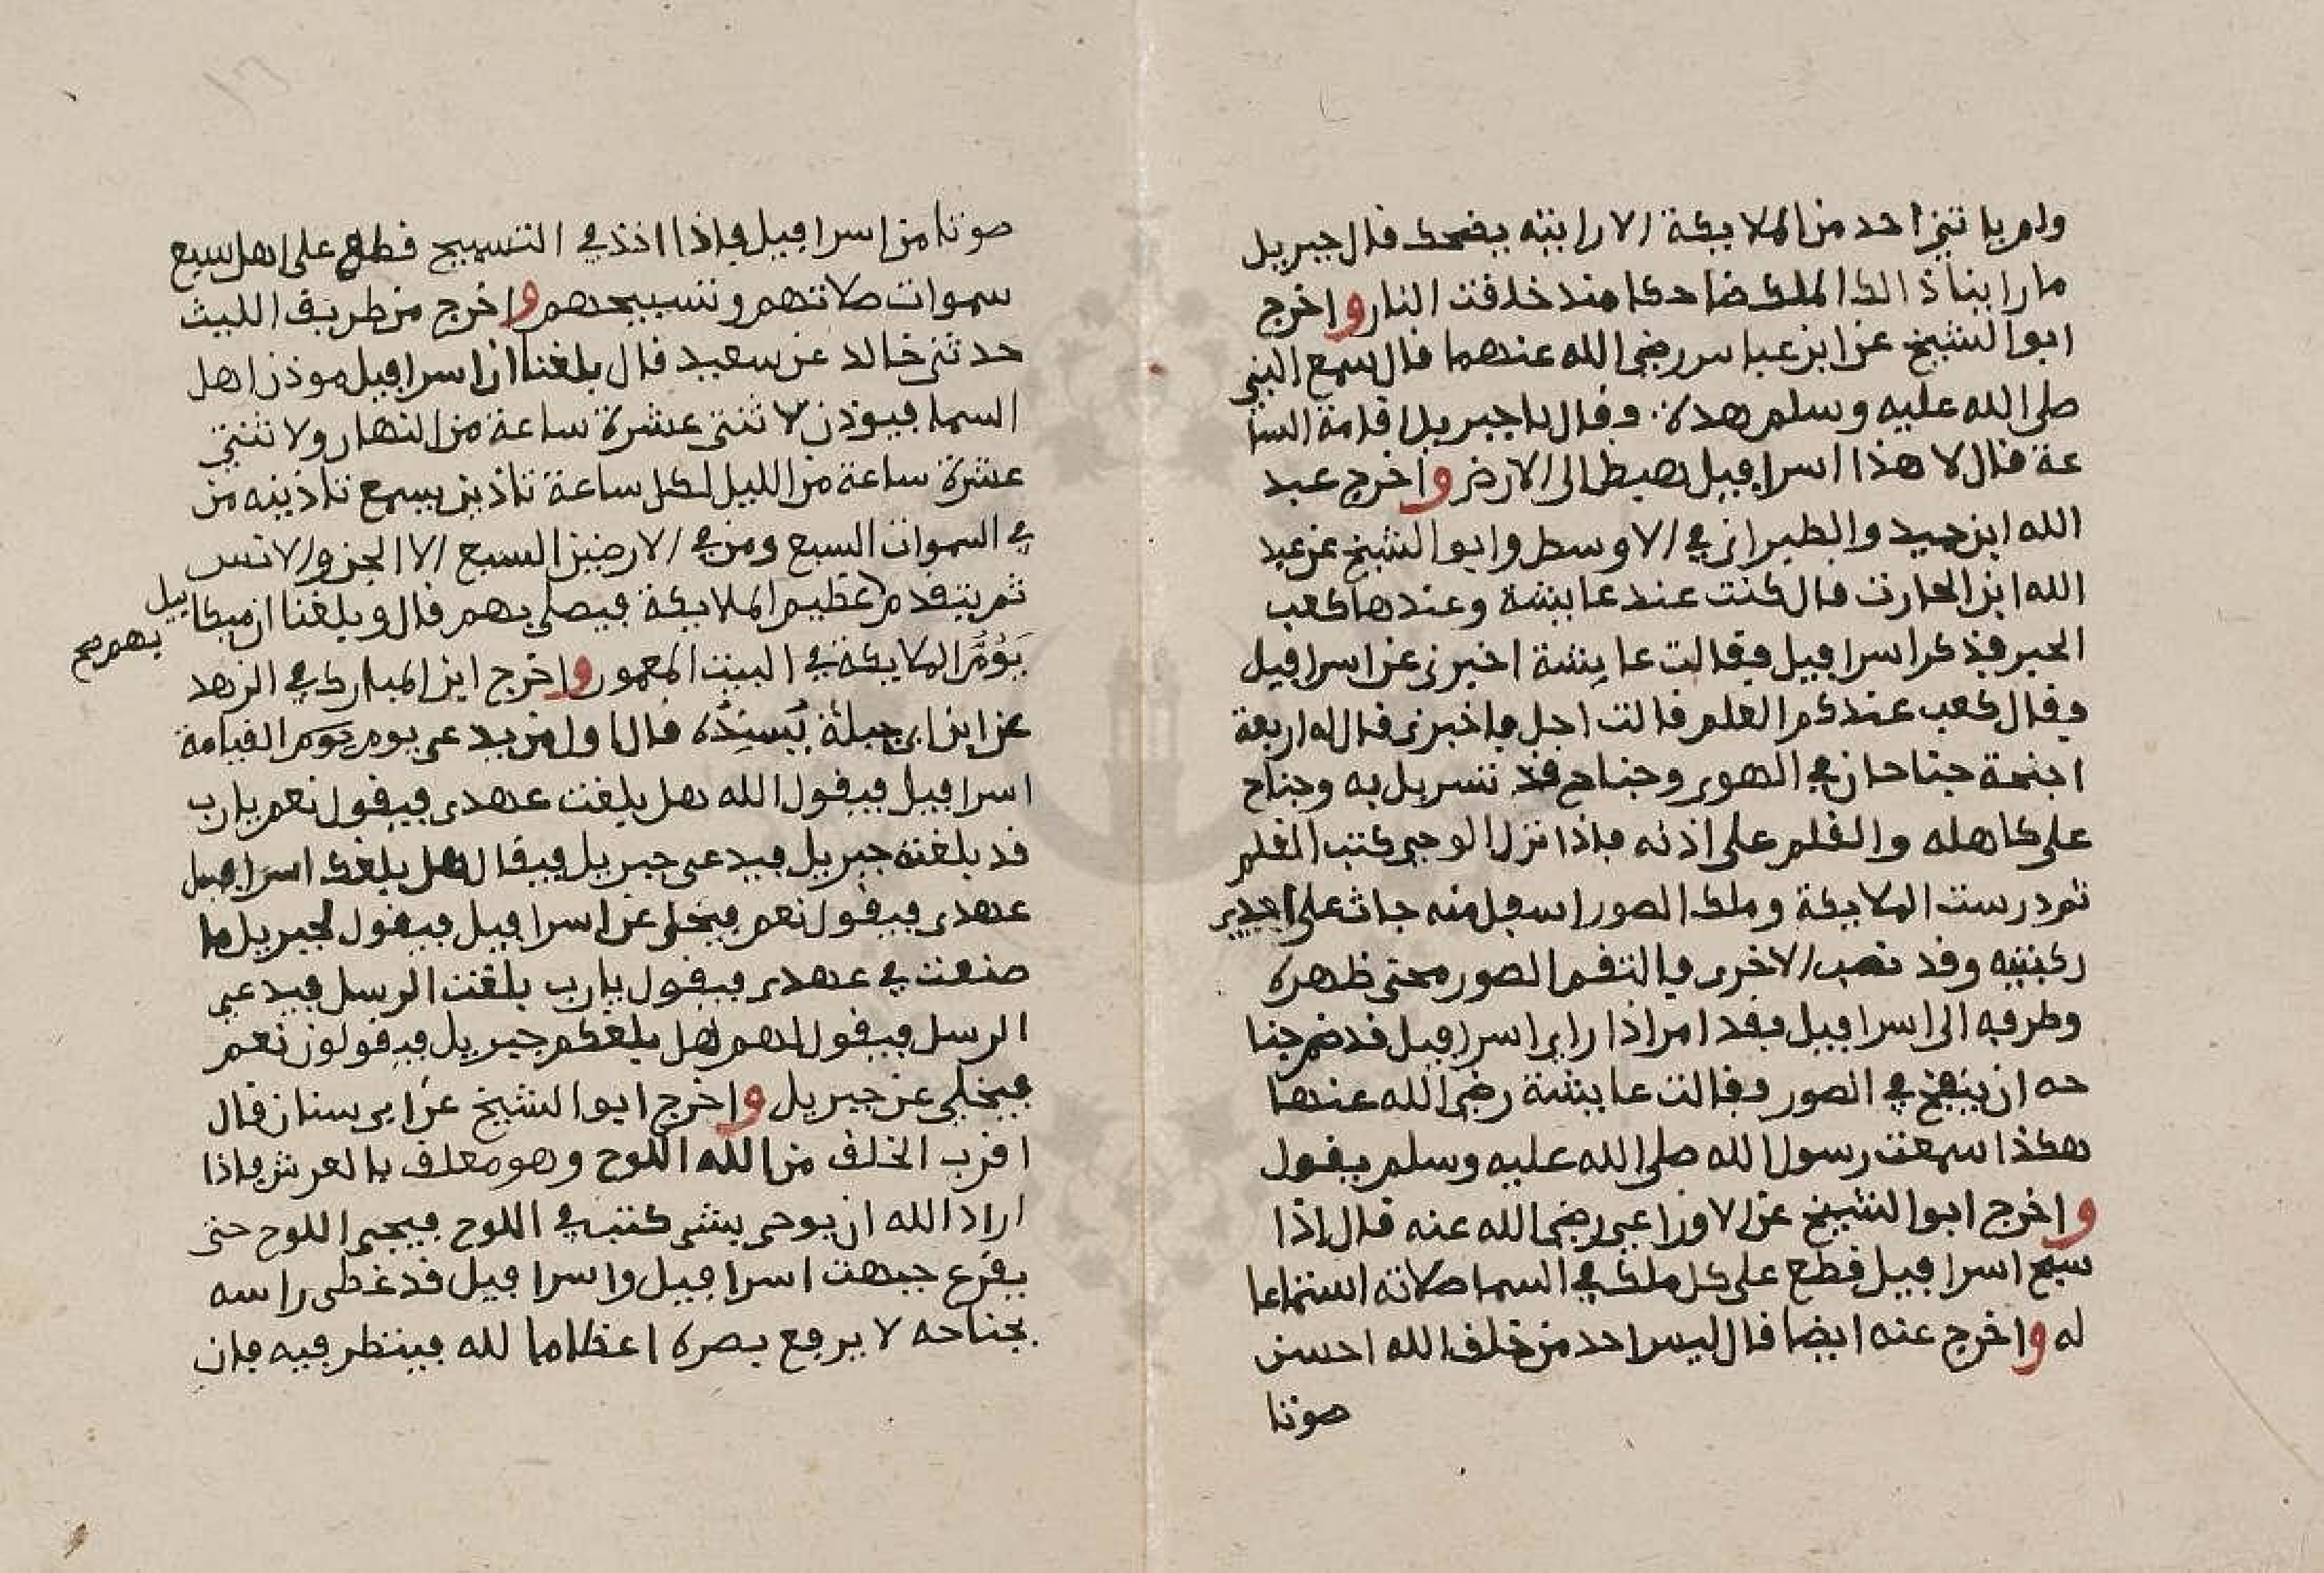 ولم ياتني احد من الملايكة الا رايته يضحك قال جبريل
ما راينا ذالك الملك ضاحكا منذ خلقت النار واخرج
ابوا الشيخ عن ابن عباس رضي الله عنهما قال سمع النبي
صلى الله عليه وسلم هدة فقال يا جبريل اقامة السا
عة قال لا هذا اسرافيل هبط الى الارض واخرج عبد
الله ابن حميد والطبراني في الاوسط وابو الشيخ عن عبد
الله ابن الحارث قال كنت عند عايشة وعندها كعب
الحبر فذكر اسرافيل فقالت عايشة اخبرني عن اسرافيل
فقال كعب عندكم العلم قالت اجل فاخبرني قال له اربعة
اجنحة جناحان في الهوى وجناح قد تسربل به وجناح
على كاهله والقلم على اذنه فاذا نزل الوحي كتب القلم
ثم درست الملايكة وملك الصور اسفل منه جاث على
ركبتيه وقد نصب الاخرى فالتقم الصور محنى ظهره
وطرفه الى اسرافيل فقد امر اذا راى اسرافيل قد ضم جنا
حه ان ينفخ في الصور فقالت عايشة رضي الله عنها
هكذا سمعت رسول الله صلى الله عليه وسلم يقول
واخرج ابوا الشيخ عن الاوزاعي رضي الله عنه قال اذا
سبح اسرافيل قطع على كل ملك في السما صلاته استماعا
له واخرج عنه ايضا قال ليس احد من خلق الله احسن
صوتا
صوتا من اسرافيل فاذا اخذ في التسبيح قطع على اهل سبع
سموات صلاتهم وتسبيحهم واخرج من طريق الليث
حدثني خالد عن سعيد قال بلغنا ان اسرافيل موذن اهل
السما فيوذن لاثنتى عشرة ساعة من النهار ولاثنتي
عشرة ساعة من الليل لكل ساعة تاذين يسمع تاذينه من
في السموات السبع ومن في الارضين السبع الا الجن والانس
ثم يتقدم عظيم الملايكة فيصلي بهم قال وبلغنا ان ميكاييل
يَؤُمُّ الملايكة في البيت المعمور واخرج ابن المبارك في الزهد
بهم صح
عن ابن ابي جبلة بسنده قال اول من يدعى يوم القيامة
اسرافيل فيقول الله هل بلغت عهدى فيقول نعم يارب
قد بلغته جبريل فيدعى جبريل فيقال هل بلغك اسرافيل
عهدى فيقول نعم فيخلى عن اسرافيل فيقول لجبريل ما
صنعت في عهدى فيقول يارب بلغت الرسل فيدعى
الرسل فيقول لهم هل بلغكم جبريل فيقولون نعم
فيخلى عن جبريل واخرج ابوا الشيخ عن ابى سنان قال
اقرب الخلق من الله اللوح وهو معلق بالعرش فاذا
اراد الله ان يوحى بشى كتب في اللوح فيجى اللوح حتى
يقرع جبهت اسرافيل واسرافيل قد غطى راسه
بجناحه لا يرفع بصره اعظاما لله فينظر فيه فان